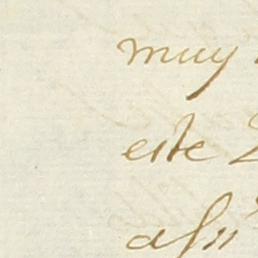 muy
este
assi